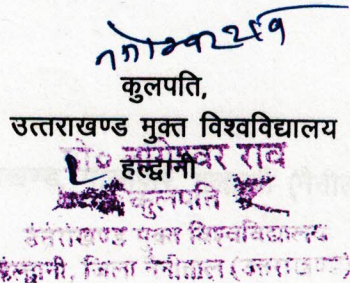 कुलपति,
उत्तराखण्ड मुक्त विश्वविद्यालय
हल्द्वानी
राव
कुलपति
उत्तराखण्ड मुक्त विश्वविद्यालय
हल्द्वानी, जिला नैनीताल (उत्तराखण्ड)